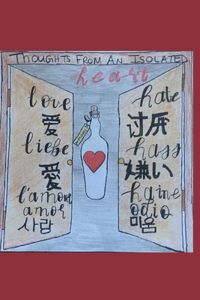 THOUGHTS FROM AN ISOLATED
heart
love
愛
liebe
愛
l'amour
amor
사랑
hate
讨厌
hass
嫌い
haine
odio
미움